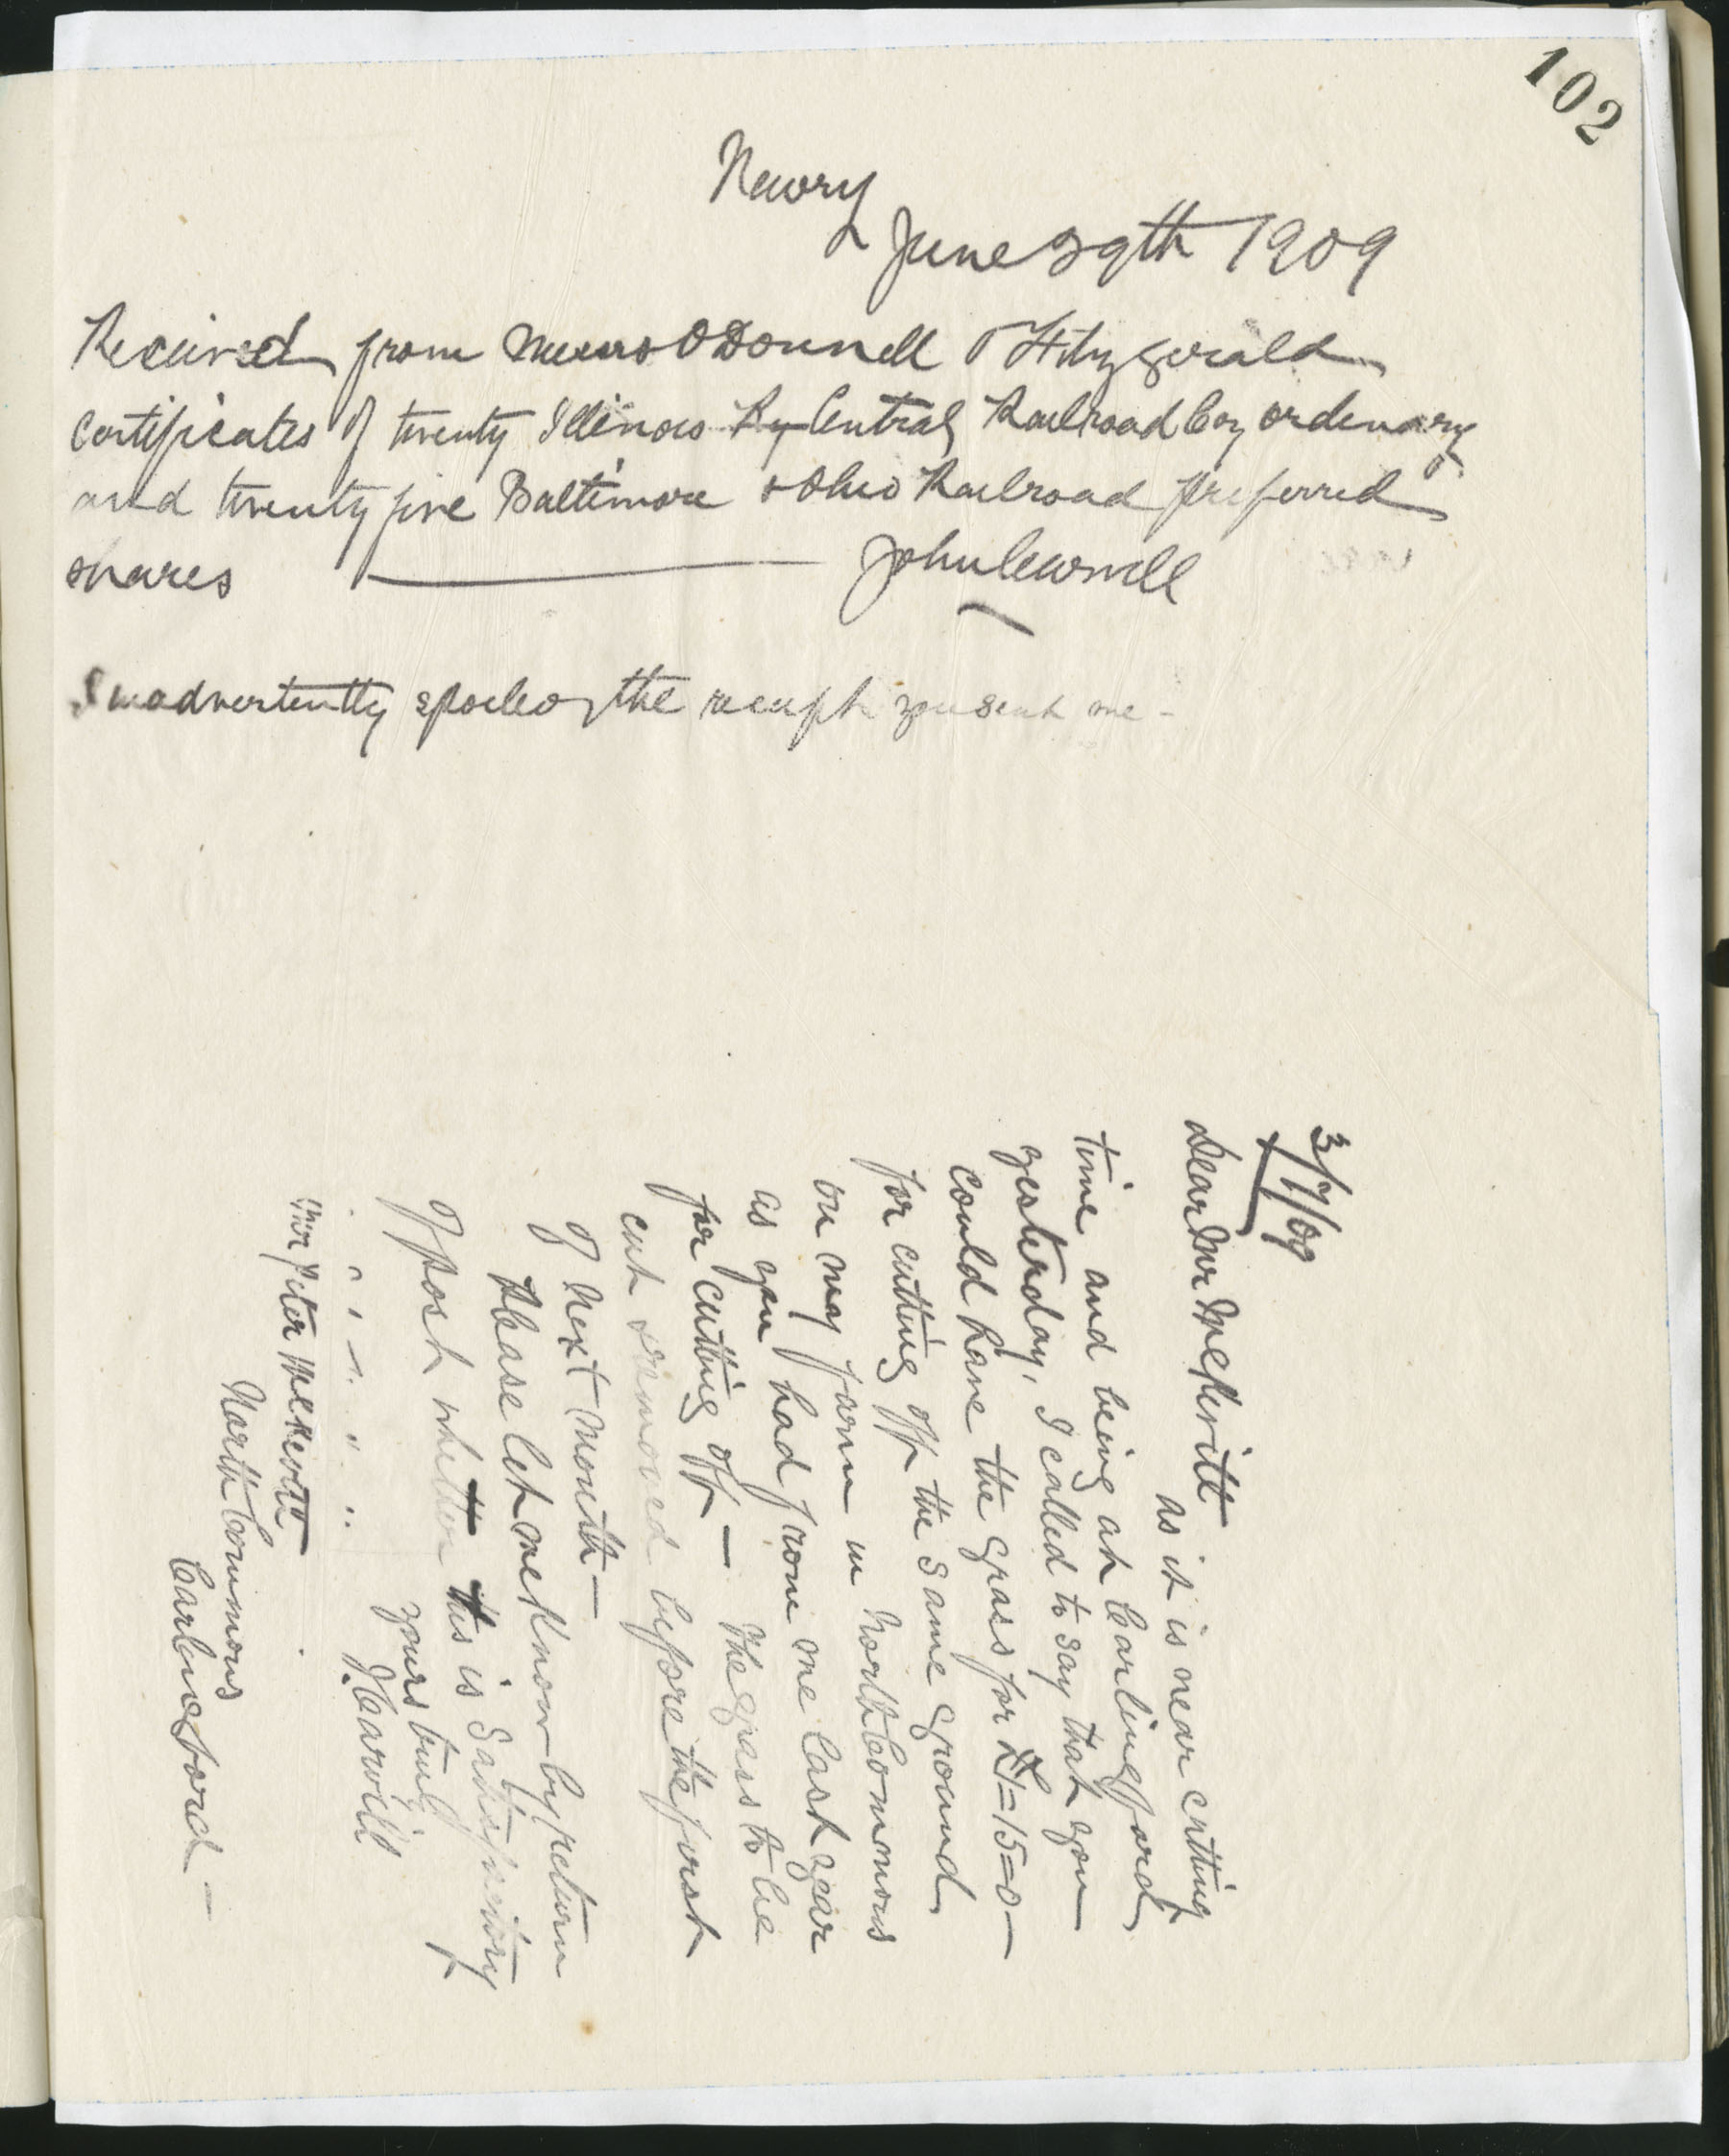 102
Newry
June 29th 1909
Received from Messrs O'Donnell & Fitzgerald
Certificates of twenty Illinois Ry Central Railroad Coy ordenary
and twenty five Baltimore & Ohio Railroad preferred
shares — John Carvill
I inadvertently spoiled the receipt you sent me -
3/7/09
Dear Mr McKevitt
as it is near cutting
time and being at Carlingford
yesterday, I called to say that you
could have the grass for £1=15=0 —
for cutting off the same ground
on my farm in North Commons
as you had from me last year
for cutting off — The grass to be
cut & removed before the first
of next month —
Please let me know by return
of post whether this is satisfactory
yours truly
J. Carvill
Mr Peter McKevitt
North Commons
Carlingford —